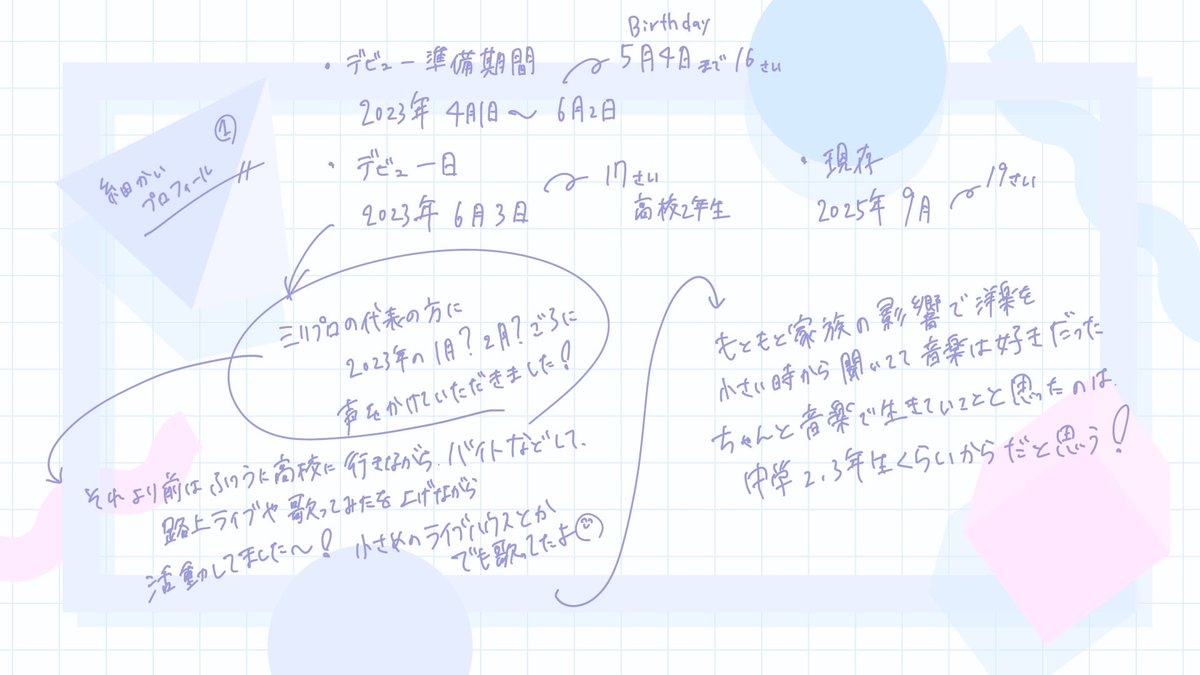 ①
細かい
プロフィール
・デビュー準備期間
Birthday
5月4日まで16さい
2023年 4月1日〜 6月2日
・デビュー日
2023年 6月3日
17さい
高校2年生
・現存
2025年 9月
19さい
ミリプロの代表の方に
2023年の1月?2月?ごろに
声をかけていただきました!
それより前はふつうに高校に行きながら、バイトなどして、
路上ライブや歌ってみたを上げながら
活動してました〜!
小さめのライブハウスとか
でも歌ってたよ
もともと家族の影響で洋楽を
小さい時から聞いてて音楽は好きだった
ちゃんと音楽で生きていことと思ったのは、
中学2、3年生くらいからだと思う!